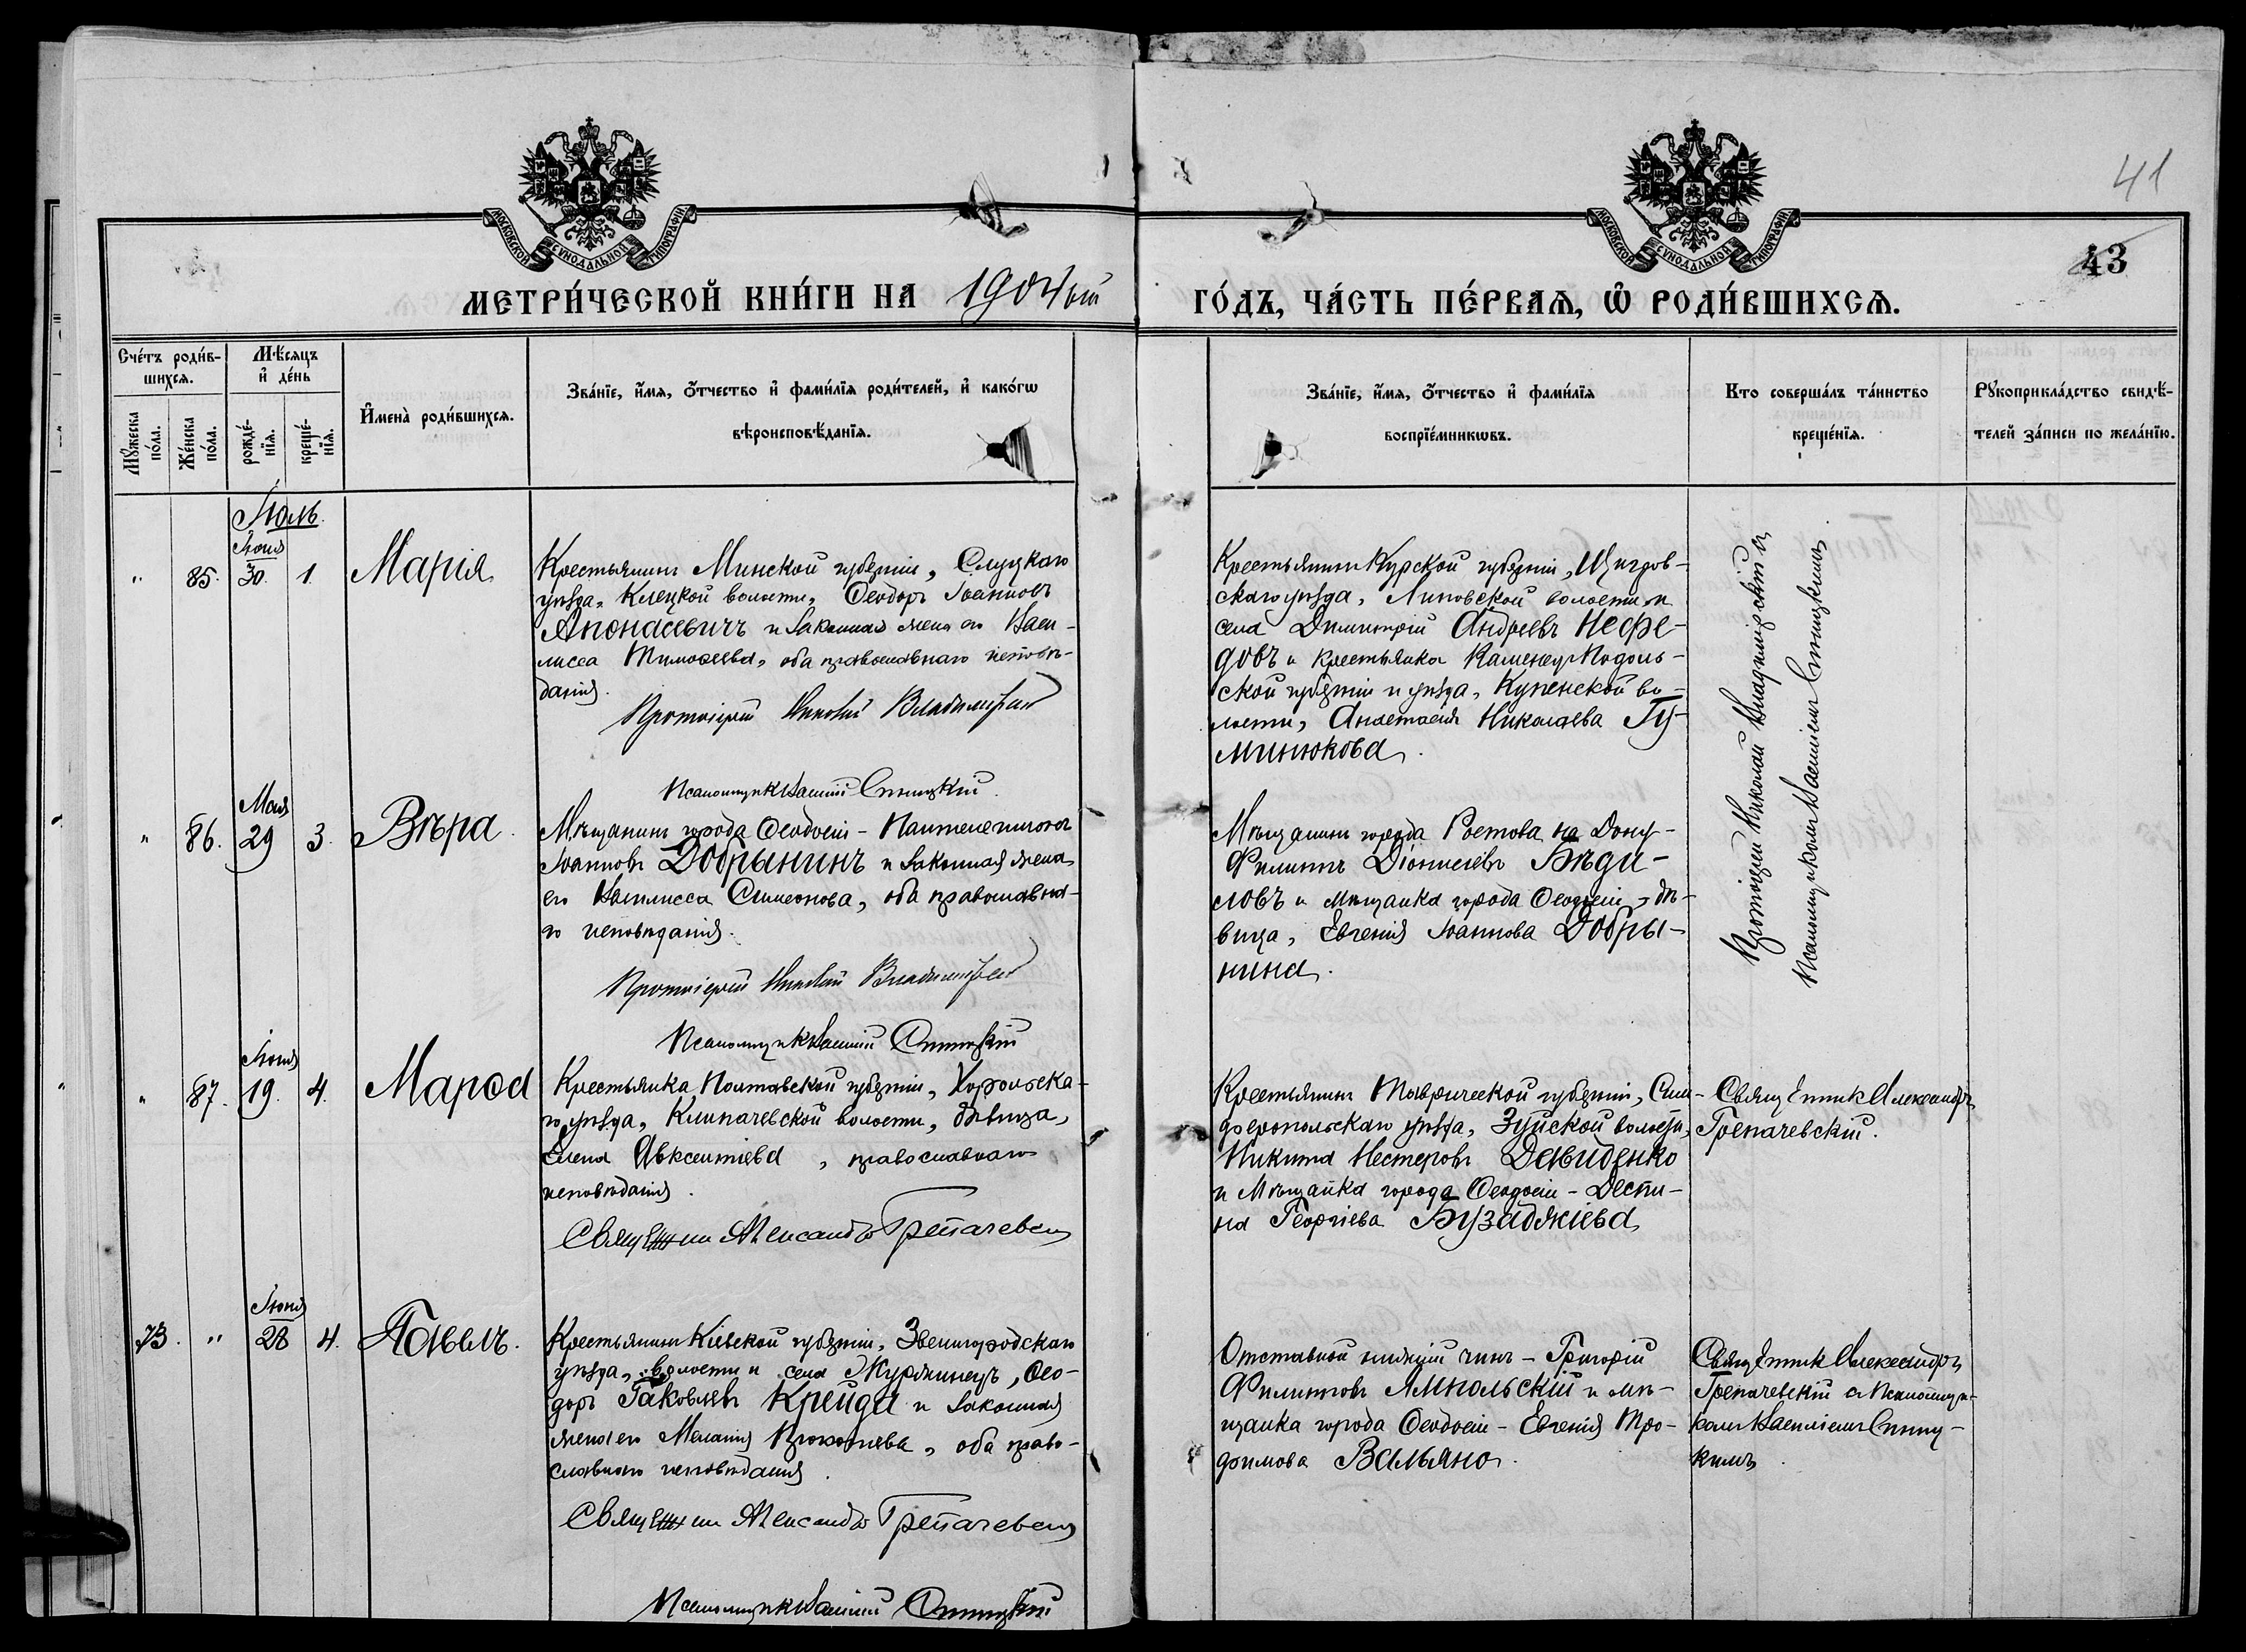 41
43
МОСКОВСКОЙ СѴНОДАЛЬНОЙ ТИПОГРАФІИ
МОСКОВСКОЙ СѴНОДАЛЬНОЙ ТИПОГРАФІИ
МЕТРИ́ЧЕСКОЙ КНИ́ГИ НА 1904ый
ГО́ДЪ, ЧА́СТЬ ПЕ́РВАѦ, Ѡ РОДИ́ВШИХСѦ.
Сче́тъ роди́в-
шихсѧ.
Мꙋ́жеска
по́ла.
Же́нска
по́ла.
Мѣ́сѧцъ
и҆ де́нь
рожде́-
нїѧ.
креще́-
нїѧ.
И҆мена̀ роди́вшихсѧ.
Зва́нїе, и҆́мѧ, ѻ҆́тчество и҆ фами́лїѧ роди́телей, и҆ како́гѡ
вѣроисповѣ́данїѧ.
Зва́нїе, и҆́мѧ, ѻ҆́тчество и҆ фами́лїѧ
воспрїе́мникѡвъ.
Кто соверша́лъ та́инство
креще́нїѧ.
Рꙋкоприкла́дство свидѣ́-
телей за́писи по жела́нїю.
Іюль.
Іюня
"
85. 30. 1. Марія
Крестьянинъ Минской губерніи, Слуцкаго
уѣзда, Клецкой волости, Ѳеодоръ Іоанновъ
Апонасевичъ и законная жена его Васи-
лисса Тимоѳеева, оба православнаго исповѣ-
данія.
Протоіерей Николай Владимірскій
Псаломщикъ Василій Стицкій.
Крестьянинъ Курской губерніи, Щигров-
скаго уѣзда, Липовской волости и
села Димитрій Андреевъ Несфе-
довъ и крестьянка Каменецъ Подоль-
ской губерніи и уѣзда, Купенской во-
лости, Анастасія Николаева Гу-
минюкова.
Протоіерей Николай Владимірскій съ
Псаломщикомъ Василіемъ Стицкимъ.
Мая
" 86. 29 3. Вѣра.
Мѣщанинъ города Ѳеодосіи - Пантелеимонъ
Іоанновъ Добрынинъ и законная жена
его Василисса Симеонова, оба православна-
го исповѣданія.
Протоіерей Николай Владимірскій
Псаломщикъ Василій Стицкій
Мѣщанинъ города Ростова на Дону -
Филиппъ Діонисіевъ Бѣди-
ловъ и мѣщанка города Ѳеодосіи, дѣ-
вица, Евгенія Іоаннова Добры-
нина.
Іюня
" 87. 19. 4. Марѳа
Крестьянка Полтавской губерніи, Хорольска-
го уѣзда, Клипачевской волости, дѣвица,
Елена Авксентіева, православнаго
исповѣданія.
Священникъ Александръ Грепачевскій
Крестьянинъ Таврической губерніи, Сим-
феропольскаго уѣзда, Зуйской волости,
Никита Нестеровъ Давиденко
и мѣщанка города Ѳеодосіи - Дести-
на Георгіева Бузаджіева
Священникъ Александръ
Грепачевскій.
Іюня
73. " 28 4. Павелъ.
Крестьянинъ Кіевской губерніи, Звенигородскаго
уѣзда, волости и села Журжинецъ, Ѳео-
доръ Іаковлевъ Крейда и законная
жена его Меланія Прокопіева, оба право-
славнаго исповѣданія.
Священникъ Александръ Грепачевскій
Псаломщикъ Василій Стицкій
Отставной нижній чинъ - Григорій
Филипповъ Ямпольскій и мѣ-
щанка города Ѳеодосіи - Евгенія Тро-
фимова Вальяно.
Священникъ Александръ
Грепачевскій съ псаломщи-
комъ Василіемъ Стиц-
кимъ.